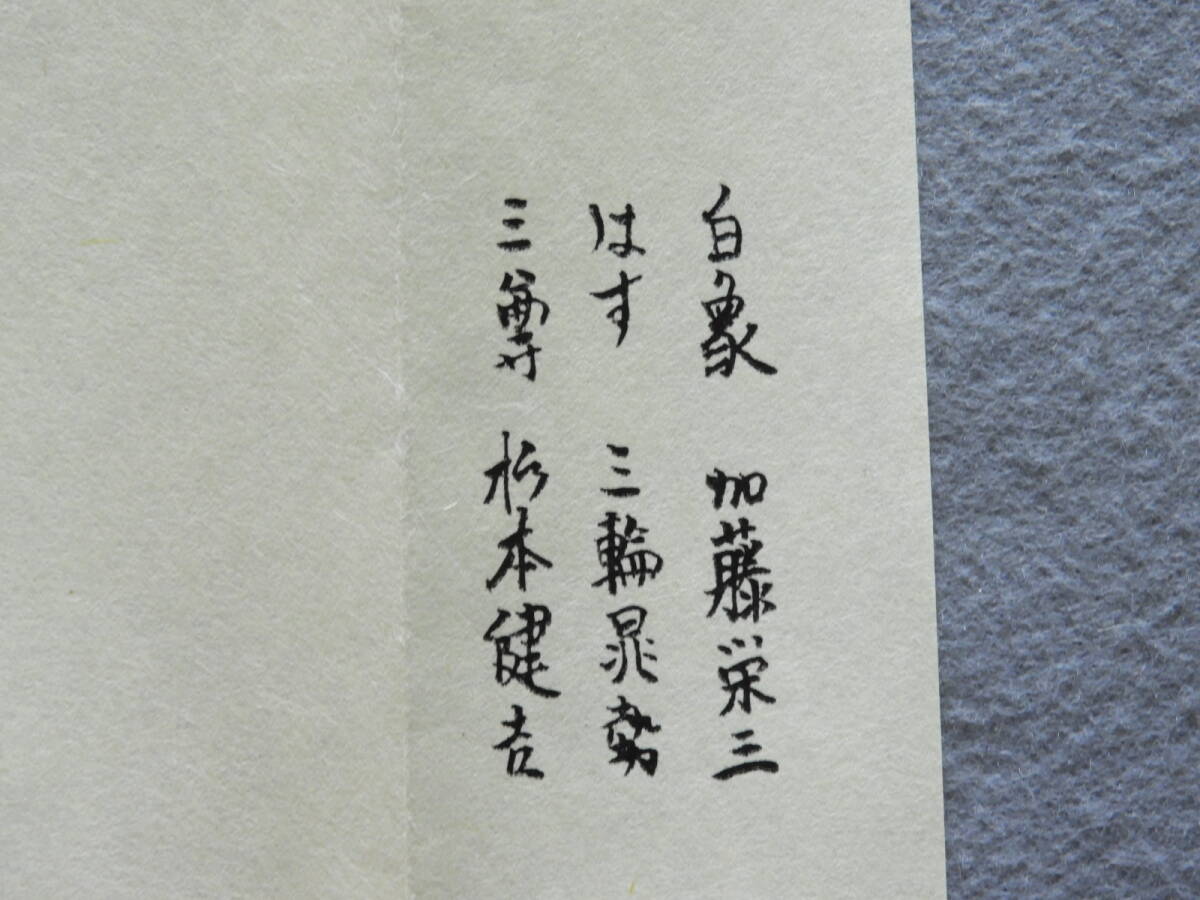 白象 加藤栄三
はす 三輪晁勢
三尊 杉本健吉